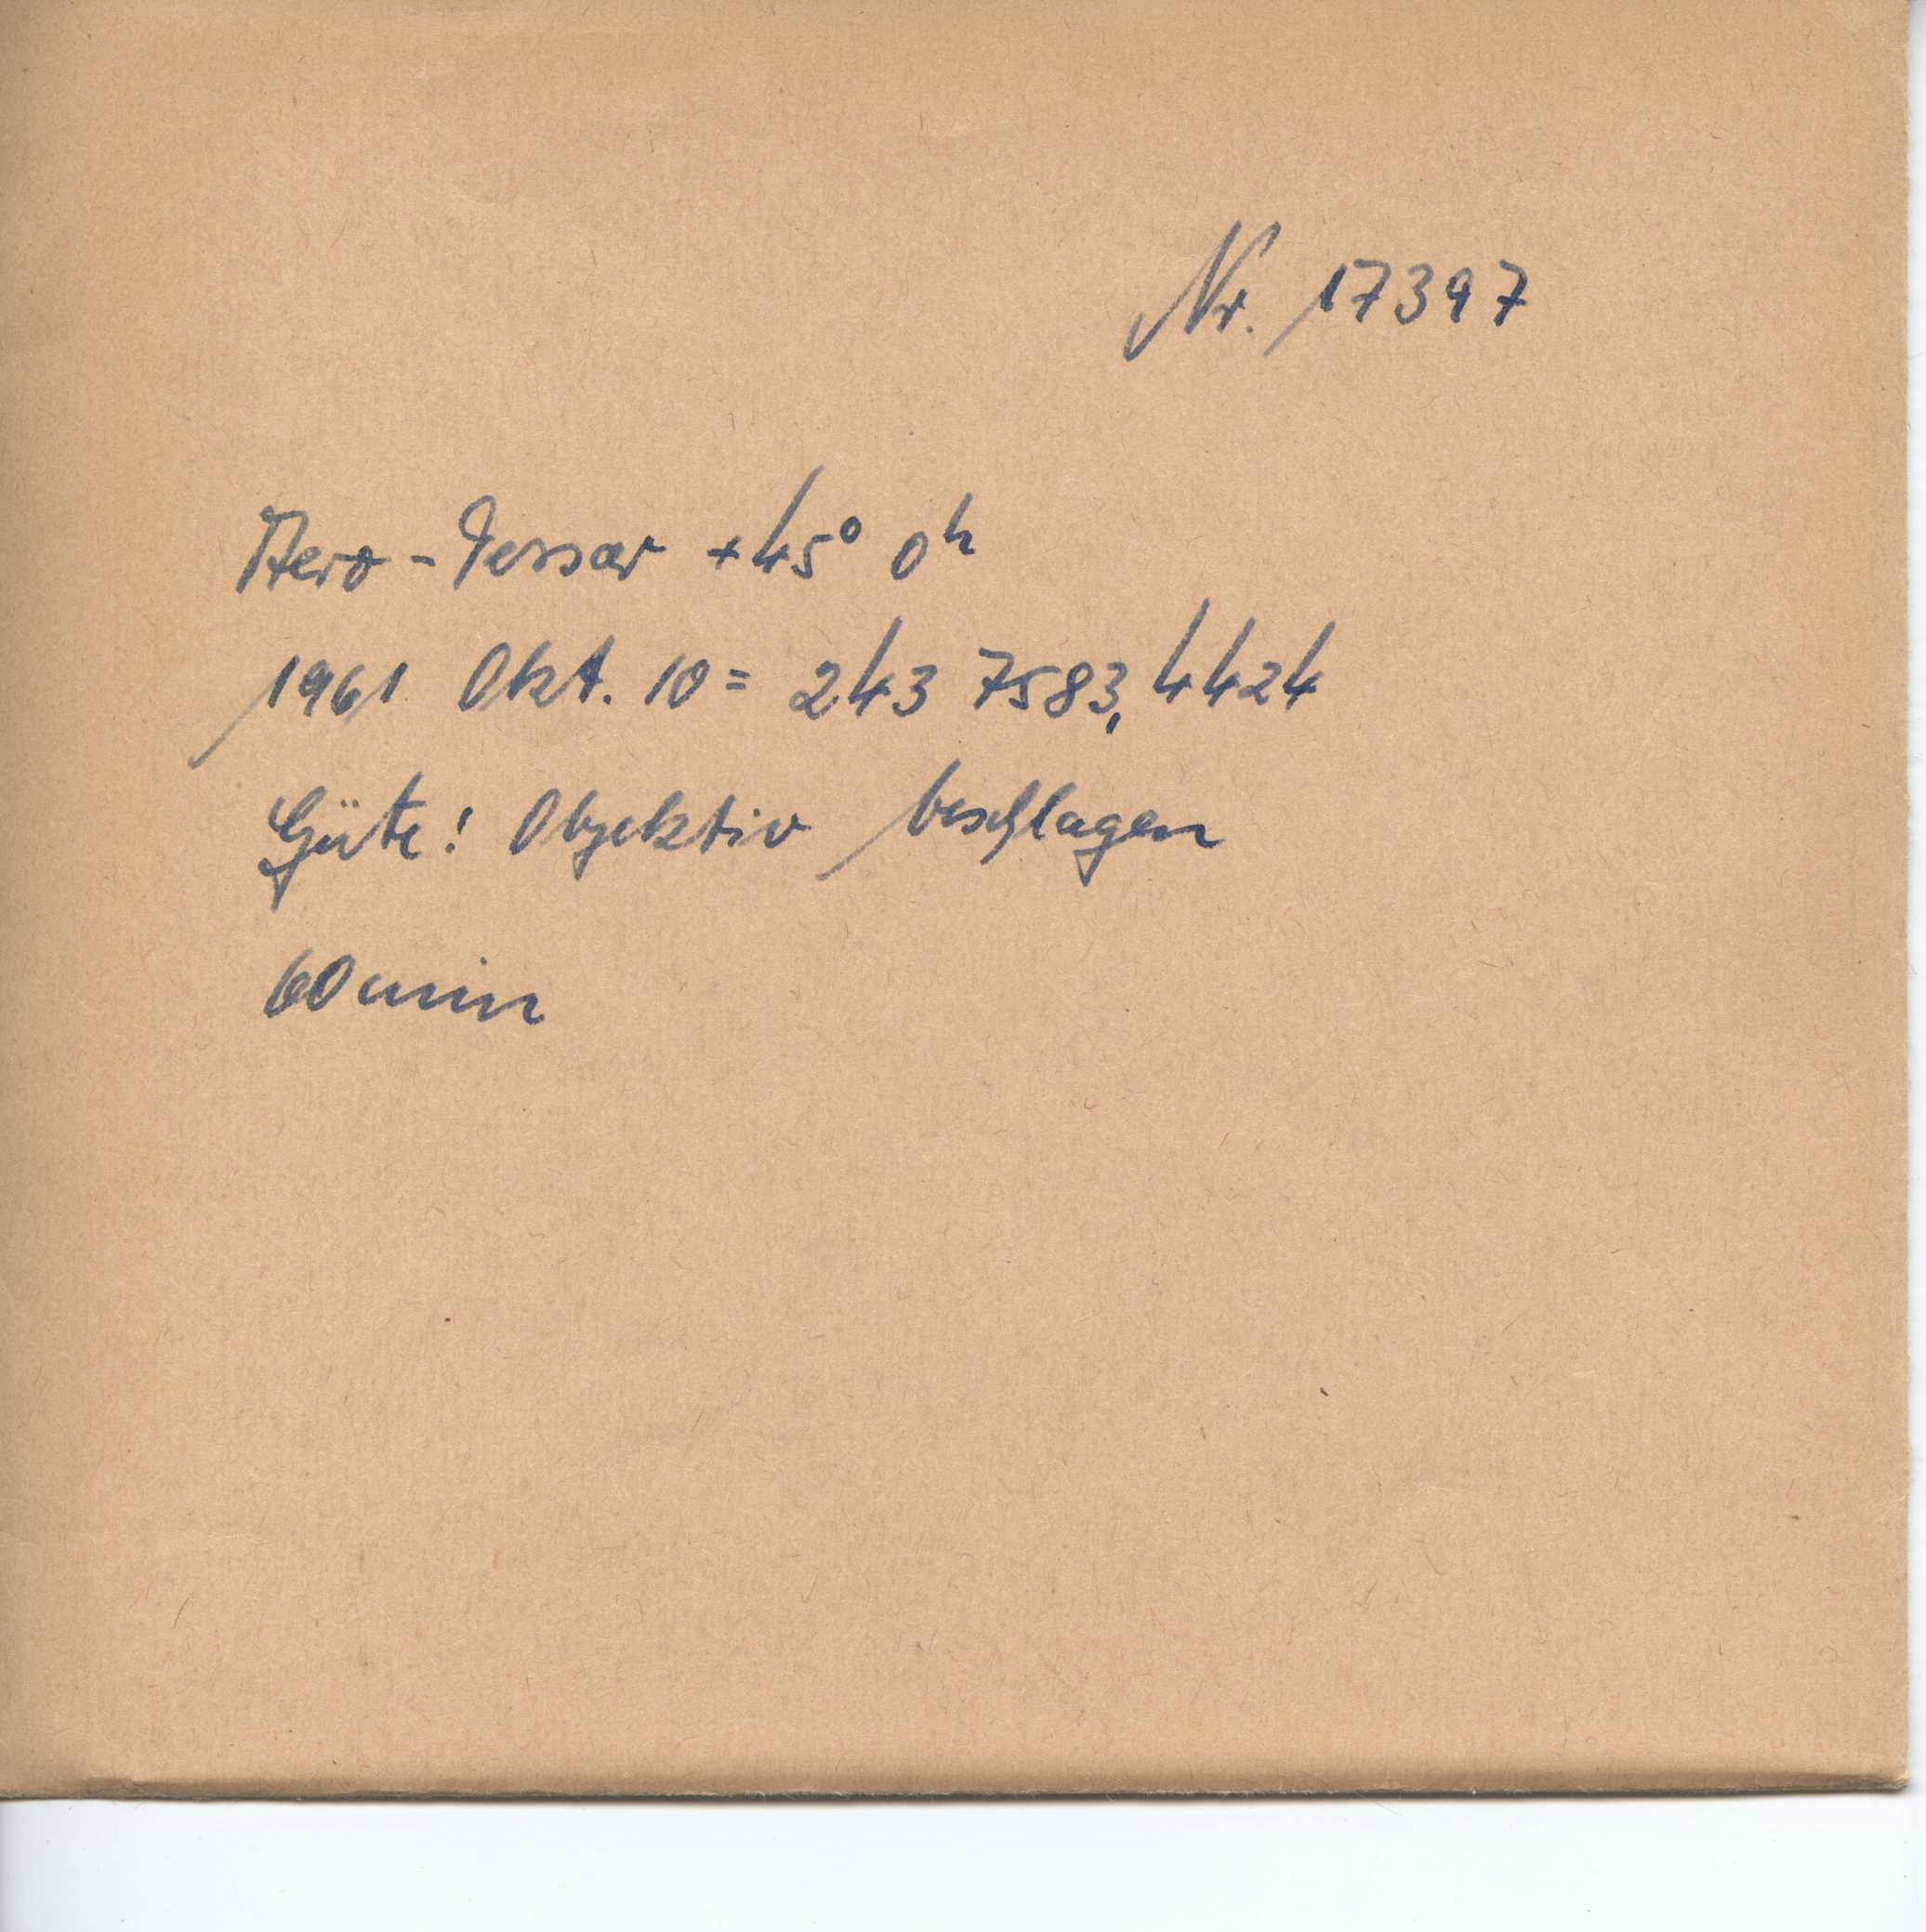 Nr. 17397
Aero-Tessar +45° 0ʰ
1961 Okt. 10 = 243 7583,4424
Güte! Objektiv beschlagen
60 min